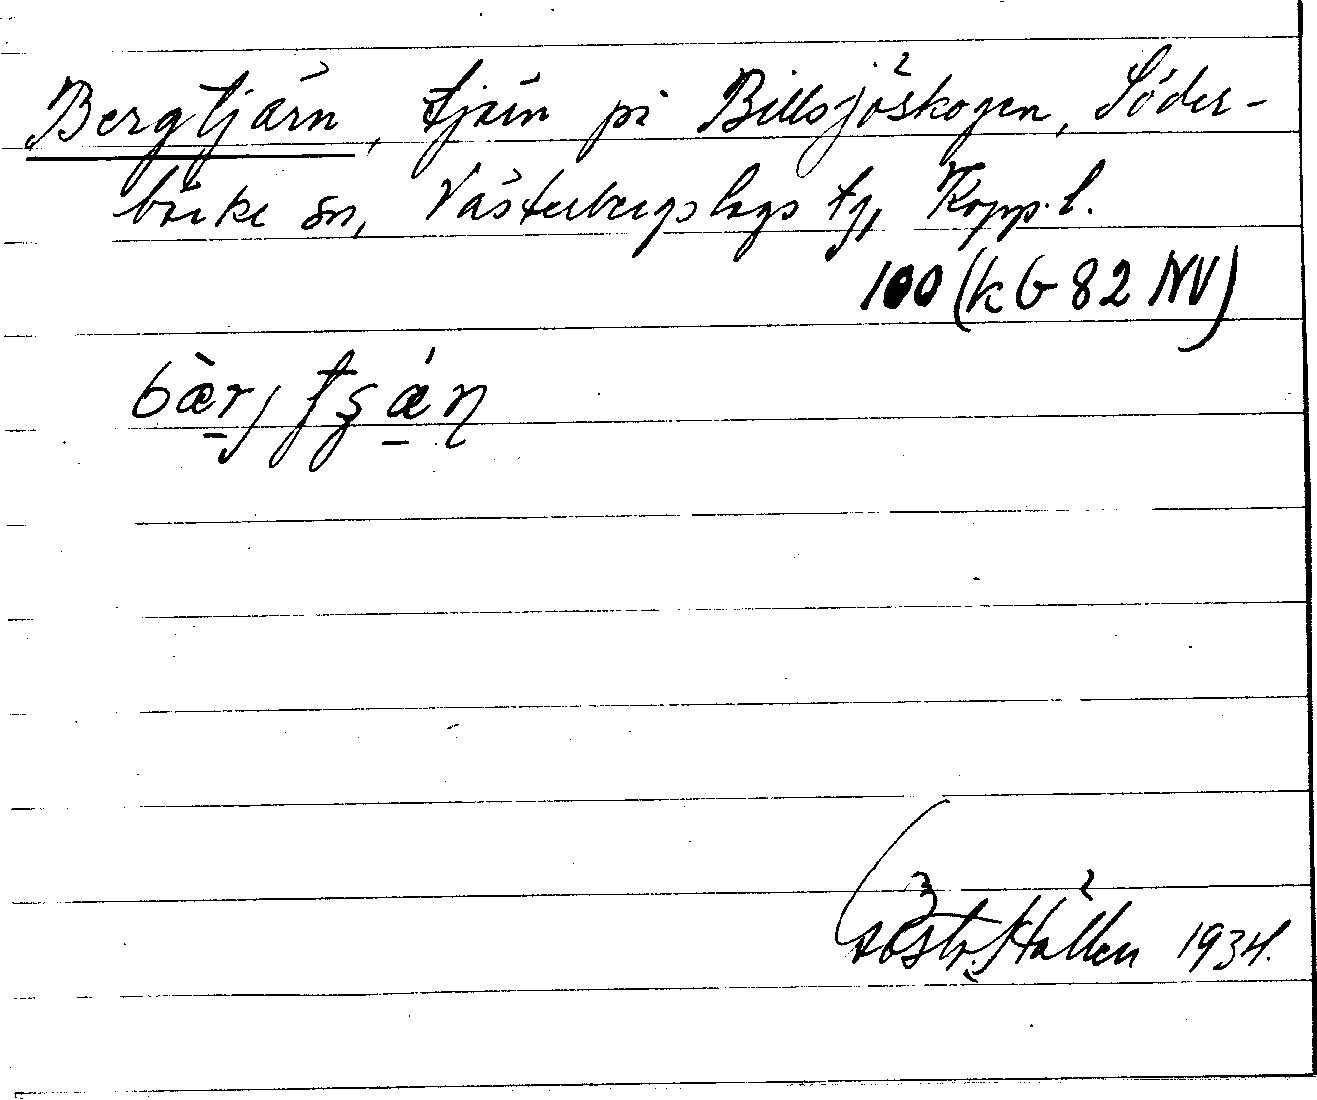 Bergtjärn, tjärn på Billsjöskogen, Söder-
bärke sn, Västerbergslags fg, Kopp. l.
100 (kG 82 NV)
Hallén 1934.